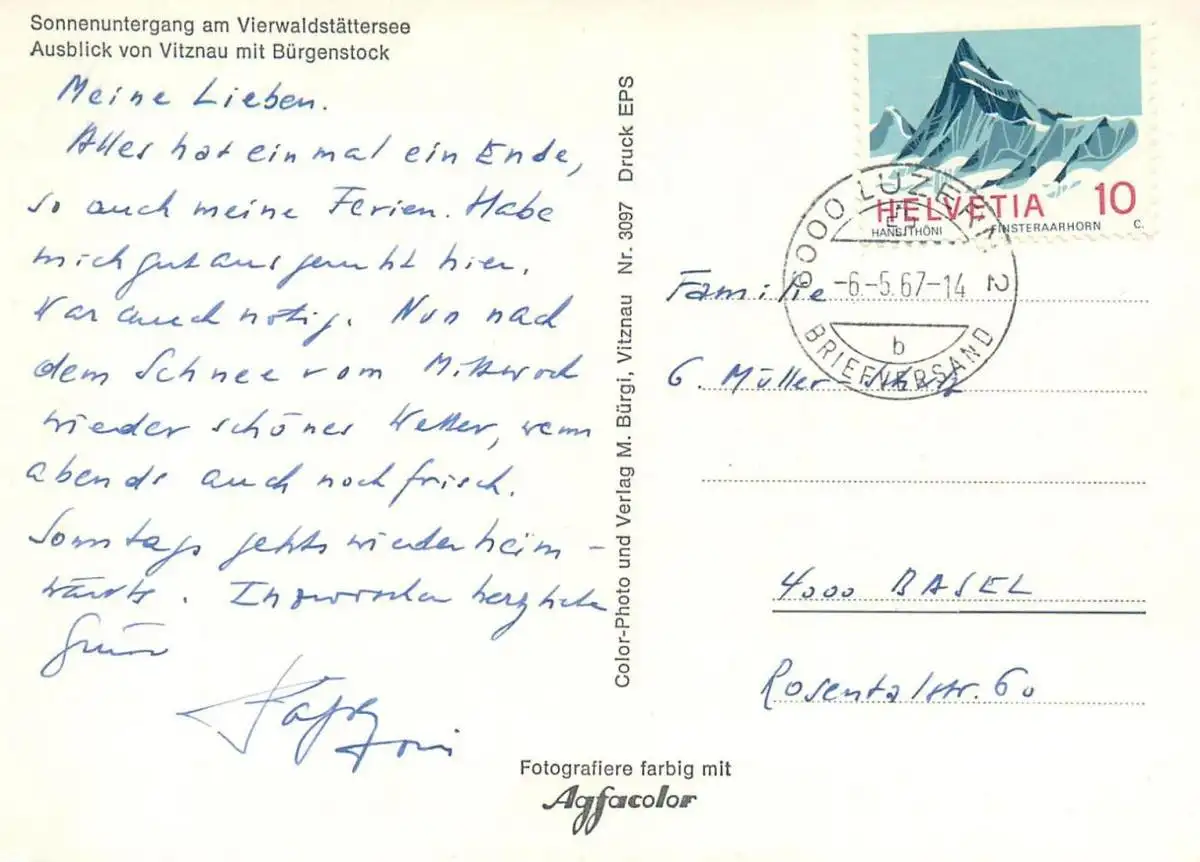 Sonnenuntergang am Vierwaldstättersee
Ausblick von Vitznau mit Bürgenstock
Meine Lieben.
Alles hat einmal ein Ende,
so auch meine Ferien. Habe
mich gut ausgeruht hier.
War auch nötig. Nun nach
dem Schnee vom Mittwoch
wieder schönes Wetter, wenn
abends auch noch frisch.
Sonntags gehts wieder heim-
wärts. Inzwischen herzliche
Grüsse
Color-Photo und Verlag M. Bürgi, Vitznau Nr. 3097 Druck EPS
HELVETIA 10
HANS THÖNI FINSTERAARHORN C.
6000 LUZERN 2
-6.-5.67-14
b
BRIEFVERSAND
Familie
G. Müller-
4000 BASEL
Rosentalstr. 60
Fotografiere farbig mit
Agfacolor